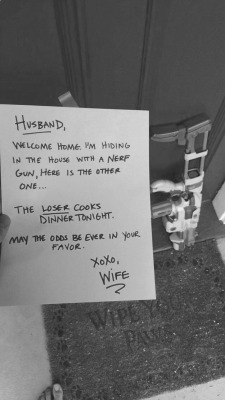 HUSBAND,
WELCOME HOME. I'M HIDING
IN THE HOUSE WITH A NERF
GUN, HERE IS THE OTHER
ONE...
THE LOSER COOKS
DINNER TONIGHT.
MAY THE ODDS BE EVER IN YOUR
FAVOR.
XOXO,
WIFE
WIPE YOUR
PAWS